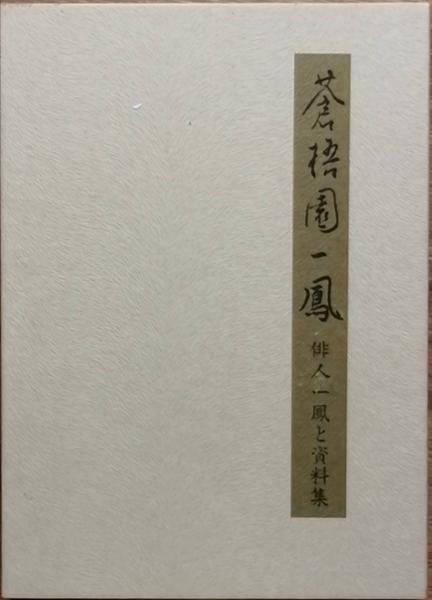 蒼梧園一鳳
俳人一鳳と資料集